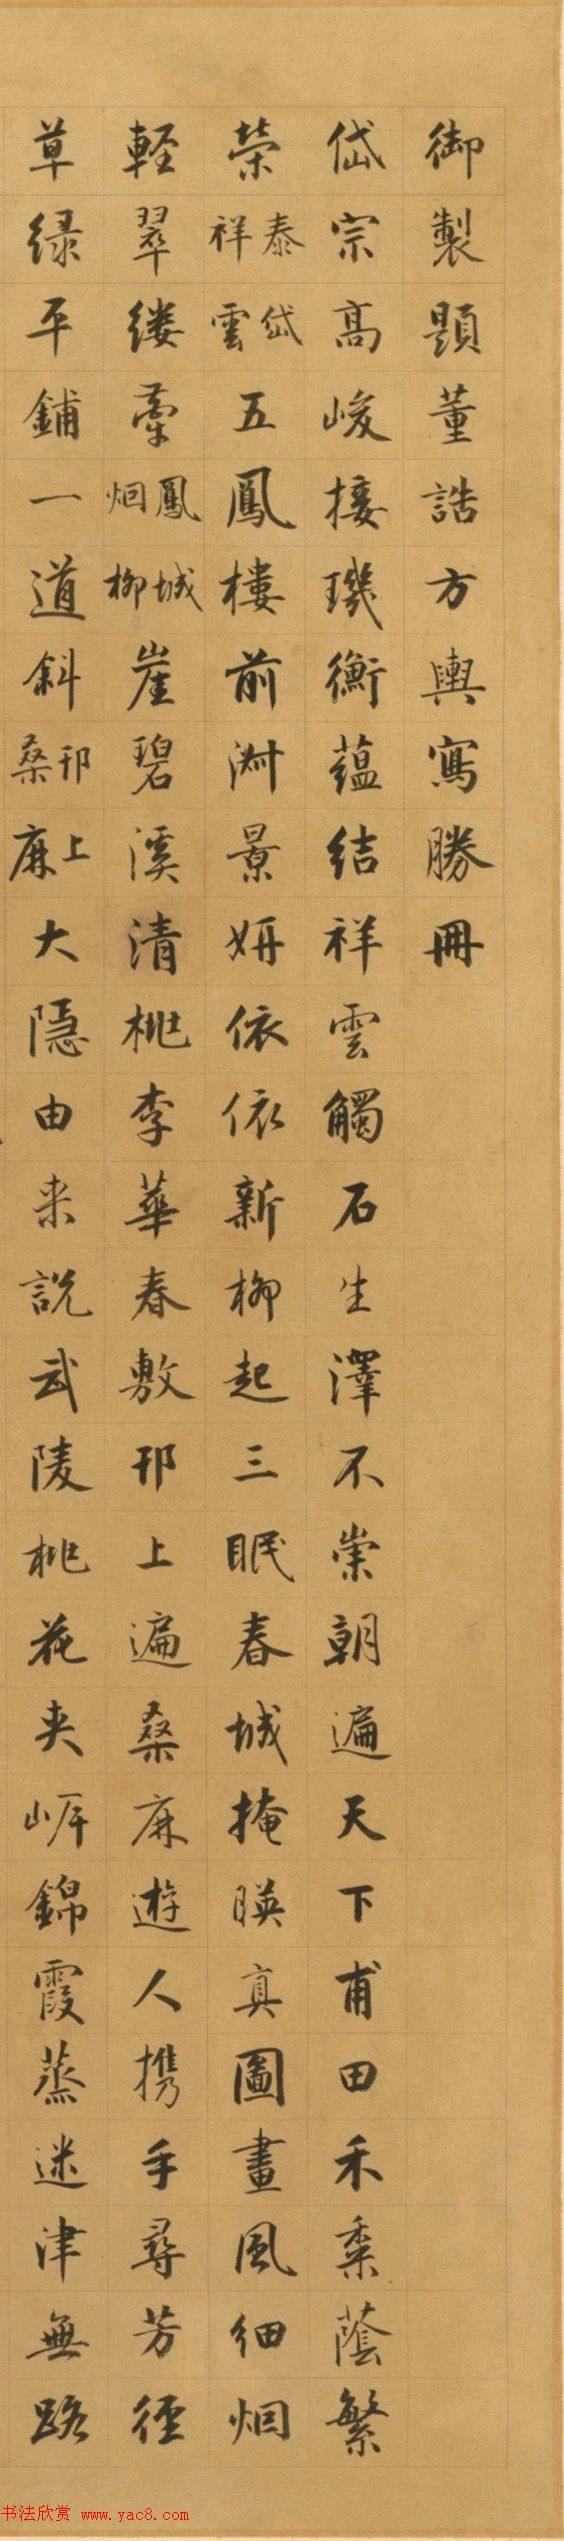 御製題董誥方輿寫勝冊
岱宗高峻接璣衡蘊結祥雲觸石生澤不崇朝遍天下甫田禾黍蔭繁
榮泰岱祥雲五鳳樓前淑景妍依依新柳起三眠春城掩暎真圖畫風細烟
輕翠縷牽鳳城烟柳崖碧溪清桃李華春敷邗上遍桑麻遊人携手尋芳徑
草绿平鋪一道斜邗上桑麻大隱由来說武陵桃花夾岸錦霞蒸迷津無路
书法欣赏 www.yac8.com